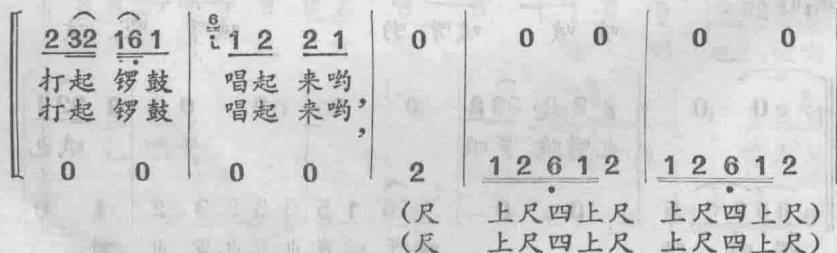 2 32 16 1 6 1 2 2 1 0 0 0 0 0
打起 锣鼓 唱起 来哟,
打起 锣鼓 唱起 来哟,
0 0 0 0 2 1 2 6 1 2 1 2 6 1 2
(尺 上尺四上尺 上尺四上尺)
(尺 上尺四上尺 上尺四上尺)